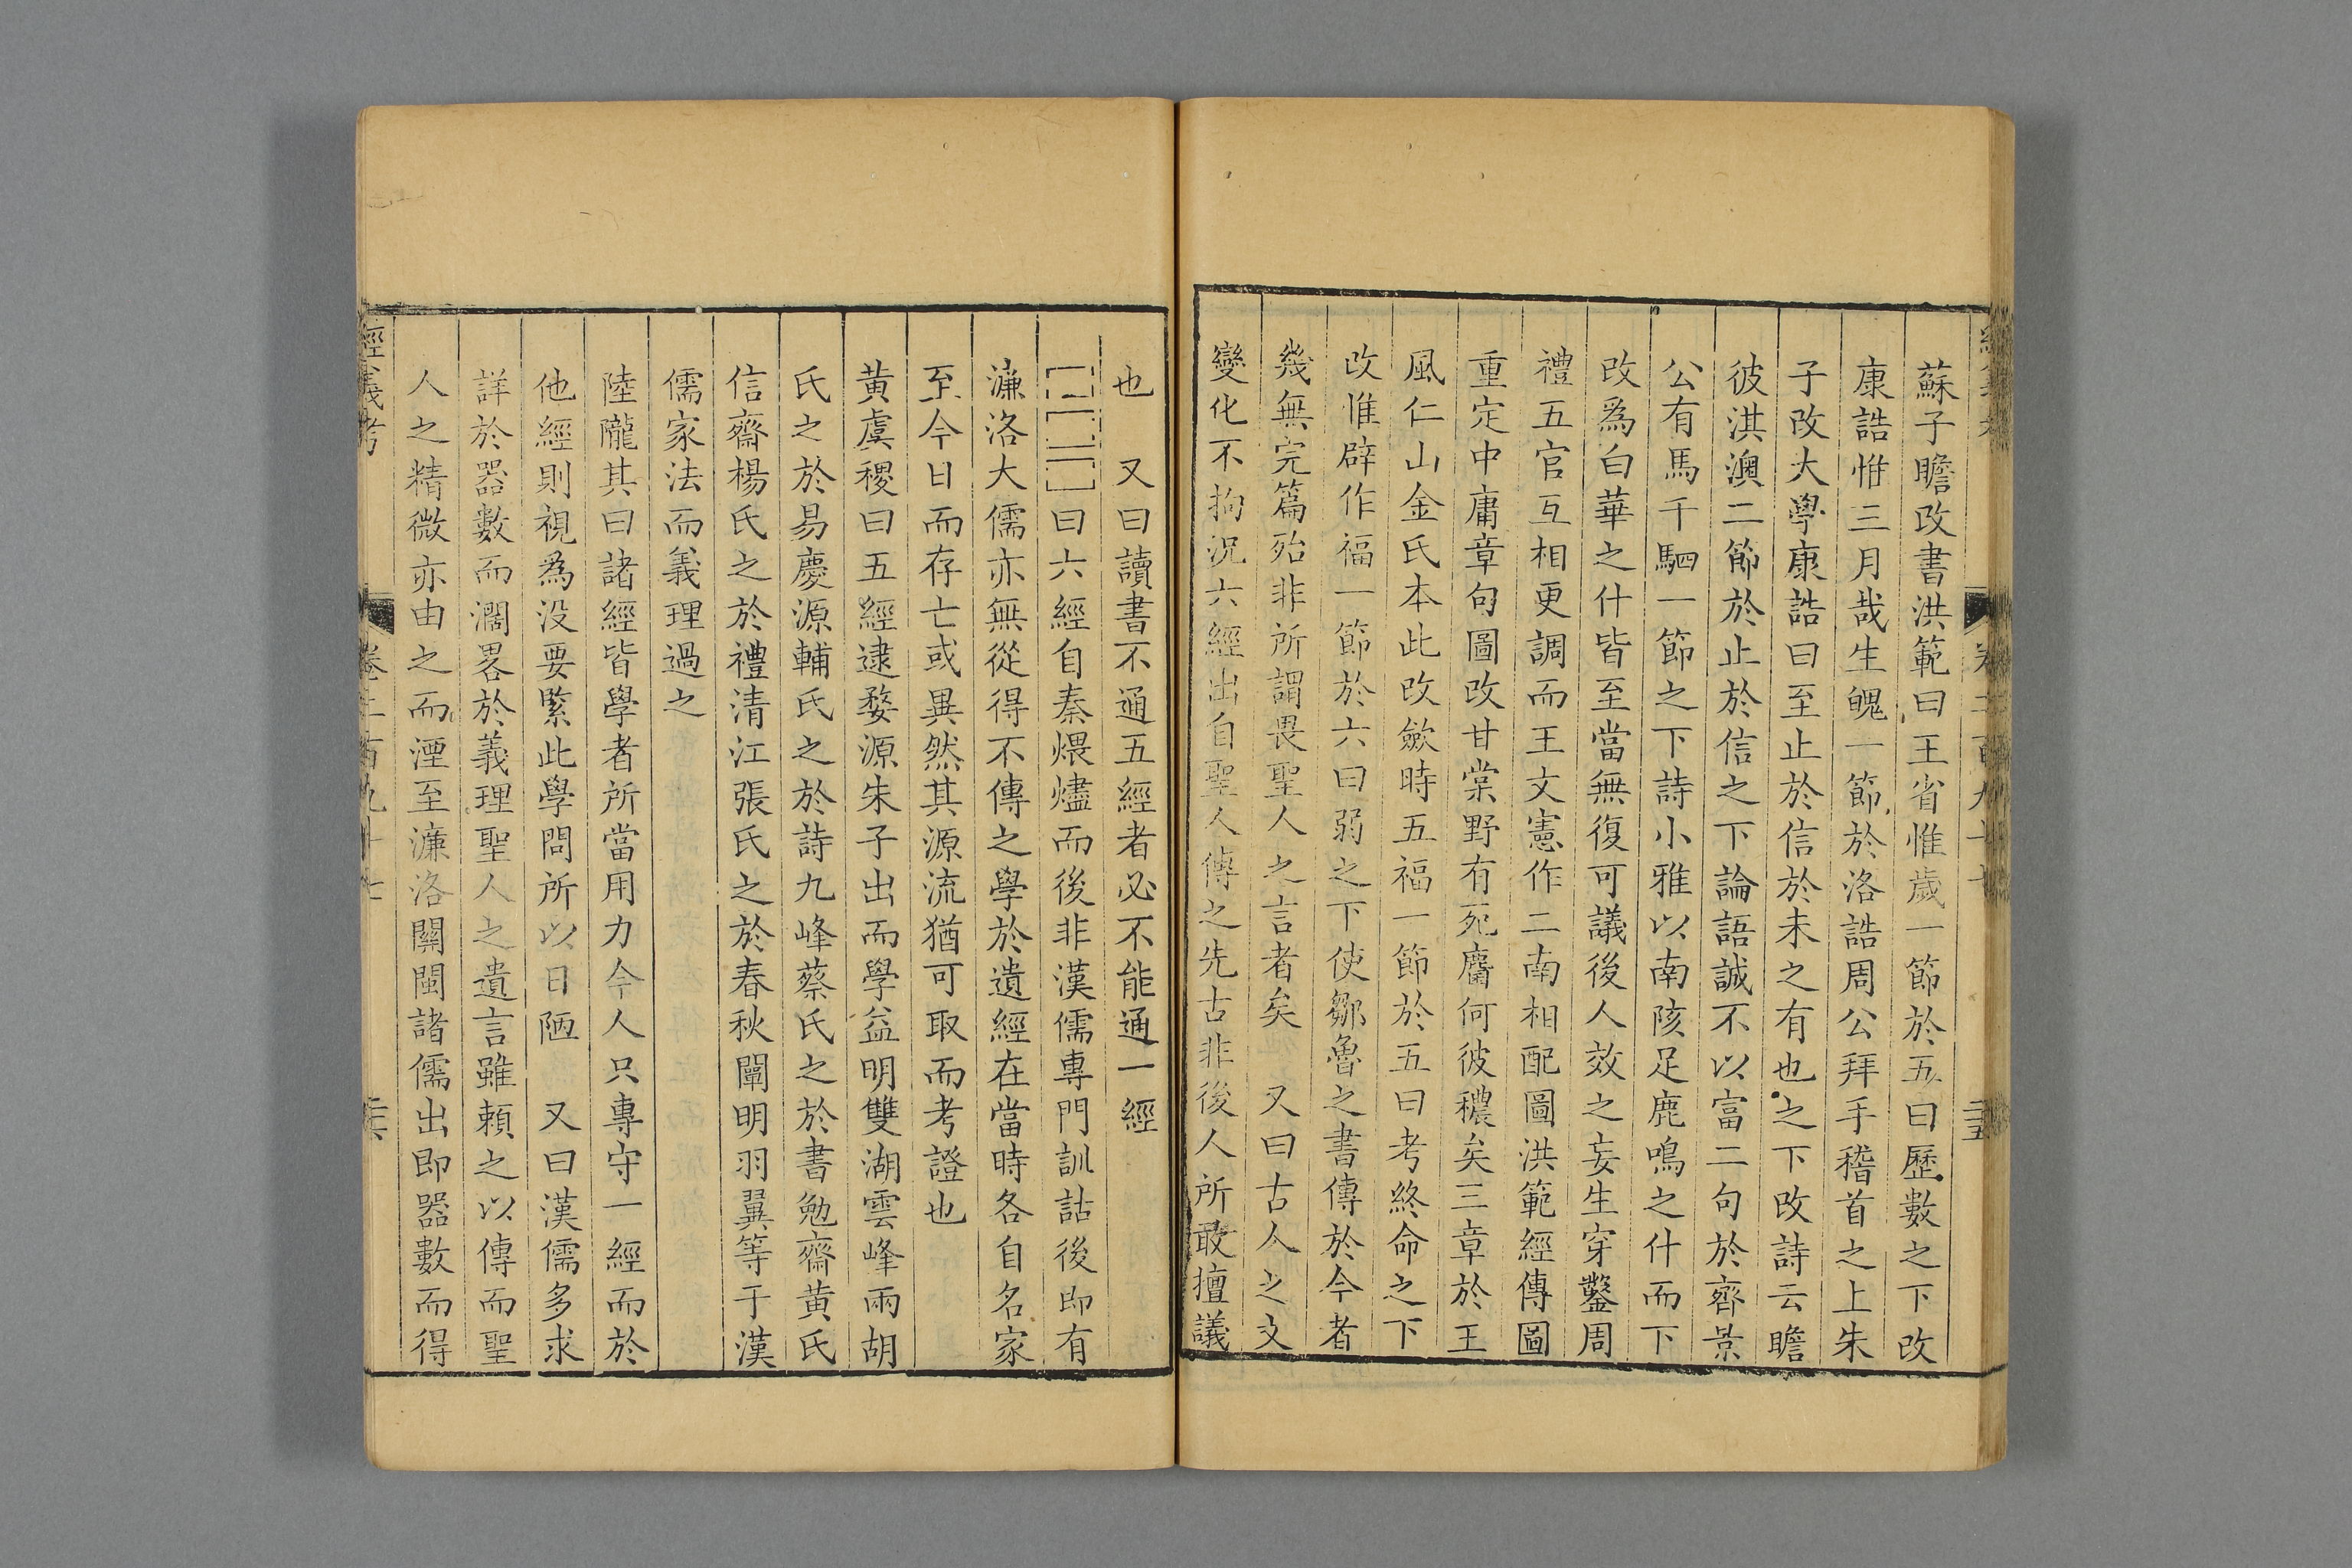 蘇子瞻改書洪範曰王省惟歲一節於五曰歷數之下改
康誥惟三月哉生魄一節於洛誥周公拜手稽首之上朱
子改大學康誥曰至止於信於未之有也之下改詩云瞻
彼淇澳二節於止於信之下論語誠不以富二句於齊景
公有馬千駟一節之下詩小雅以南陔足鹿鳴之什而下
改爲白華之什皆至當無復可議後人效之妄生穿鑿周
禮五官互相更調而王文憲作二南相配圖洪範經傳圖
重定中庸章句圖改甘棠野有死麕何彼穠矣三章於王
風仁山金氏本此改斂時五福一節於五曰考終命之下
改惟辟作福一節於六曰弱之下使鄒魯之書傳於今者
幾無完篇殆非所謂畏聖人之言者矣　又曰古人之文
變化不拘況六經出自聖人傳之先古非後人所敢擅議
也　又曰讀書不通五經者必不能通一經
曰六經自秦煨燼而後非漢儒專門訓詁後即有
濂洛大儒亦無從得不傳之學於遺經在當時各自名家
至今日而存亡或異然其源流猶可取而考證也
黃虞稷曰五經逮婺源朱子出而學益明雙湖雲峰兩胡
氏之於易慶源輔氏之於詩九峰蔡氏之於書勉齋黃氏
信齋楊氏之於禮清江張氏之於春秋闡明羽翼等于漢
儒家法而義理過之
陸隴其曰諸經皆學者所當用力今人只專守一經而於
他經則視爲没要緊此學問所以日陋　又曰漢儒多求
詳於器數而濶畧於義理聖人之遺言雖賴之以傳而聖
人之精微亦由之而湮至濂洛關閩諸儒出即器數而得
經義考
卷二百九十七